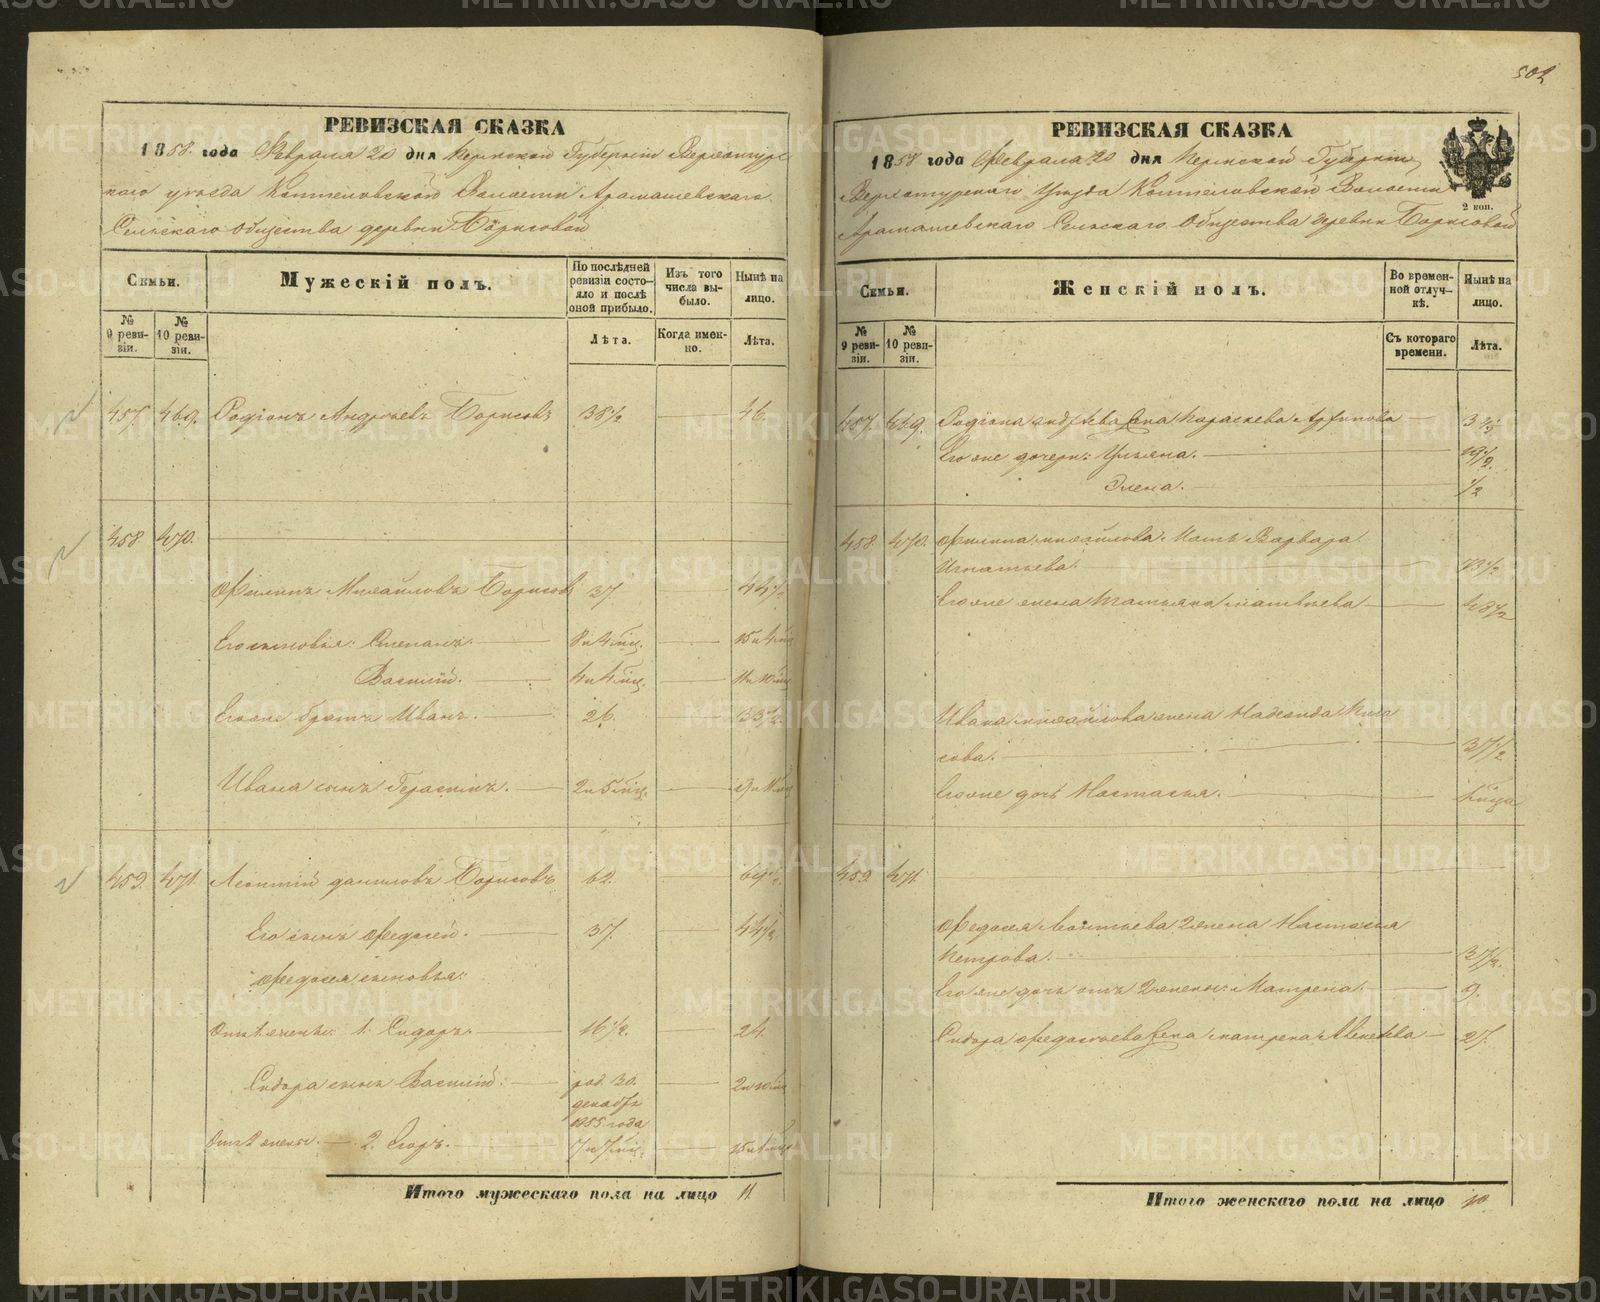 502
РЕВИЗСКАЯ СКАЗКА
1858. года Февраля 20 дня Пермской Губерніи Верхотурс
каго уезда Коптеловской Волости Арамашевскаго
Сельскаго общества деревни Борисовой
Семьи.
Мужескій полъ.
По последней ревизіи состо-
яло и послѣ
оной прибыло.
Изъ того
числа вы-
было.
Нынѣ на
лицо.
№
9 реви-
зіи.
№
10 реви-
зіи.
Лѣта.
Когда имен-
но.
Лѣта.
457. 469. Родіонъ Андреевъ Борисовъ 38½ 46.
458 470.
Филипъ Михайловъ Борисов 37 44½
Его сыновья: Степанъ. 8 и 4 мѣц. 15 и
Василій. 4 и 4 мѣц. 11 и 10
Его же братъ Иванъ. 26. 33½
Ивана сынъ Герасимъ. 2 и 5 мѣц. 9 и
459. 471. Леонтій даниловъ Борисовъ 62. 69½
Его сынъ Федосей. 37. 44½
Федосея сыновья:
Отъ 1 жены: 1. Сидоръ. 16½. 24.
Сидора сынъ Василій: род. 30. 2 и
декабря
1855 года
Отъ 2 жены. 2. Егоръ. 7 и 7 мѣц. 15 и
Итого мужескаго пола на лицо 11
РЕВИЗСКАЯ СКАЗКА
1858 года Февраля 20 дня Пермской Губерніи
Верхотурскаго Уезда Коптеловской Волости
Арамашевскаго Сельскаго Общества деревни Борисовой
2 коп.
Семьи.
Женскій полъ.
Во времен-
ной отлуч-
кѣ.
Нынѣ на
лицо.
№
9 реви-
зіи.
№
10 реви-
зіи.
Съ котораго
времени.
Лѣта.
457. 469. Родіона андреева жена Параскева
Его же дочери: Ульяна. 19½.
Елена. ½
458. 470. Филипа михайлова Мать Варвара
Игнатьева. 73½
Его же жена Татьяна матвеева 48½
Ивана михайлова жена Надежда
сова. 37½
Его же дочь Настасья.
459 471.
Федосея Леонтьева 2 жена Настасья
Петрова. 37½.
Его же дочь отъ 2 жены: Матрена. 9.
Сидора Федосеева жена матрена 27.
Итого женскаго пола на лицо 10
METRIKI.GASO-URAL.RU